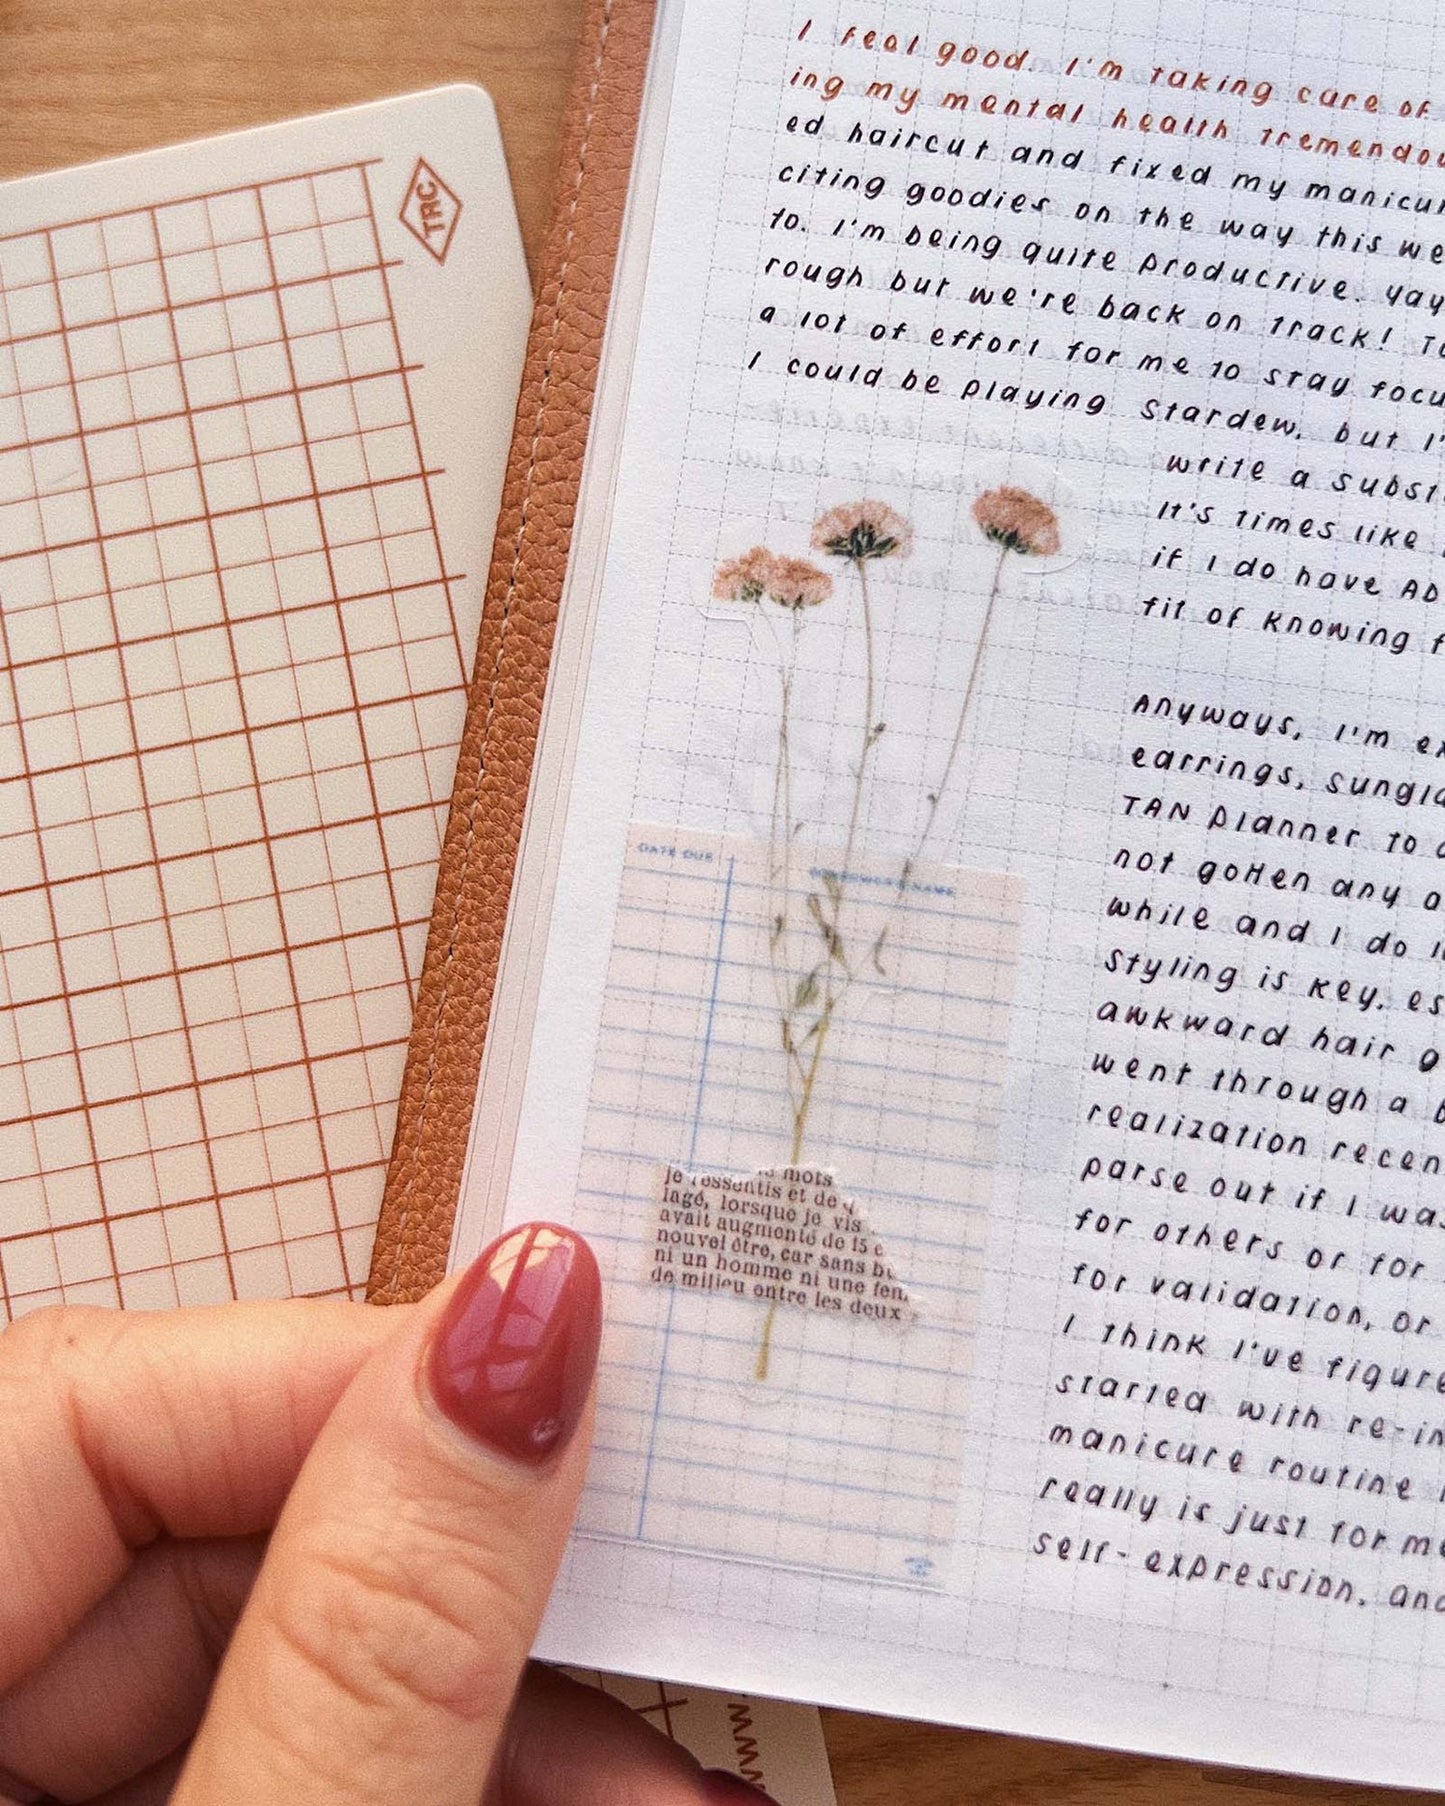 TRC
I feel good. I'm taking care of
ing my mental health tremendou
ed haircut and fixed my manicur
citing goodies on the way this we
to. I'm being quite productive. Yay
rough but we're back on track! To
a lot of effort for me to stay focu
I could be playing Stardew, but I'
write a subst
It's times like
if I do have AD
fit of knowing f
Anyways, I'm ex
earrings, sungla
TAN planner to
not gotten any a
while and I do l
Styling is key, es
awkward hair g
went through a b
realization recen
parse out if I was
for others or for
for validation, or
I think I've figure
started with re-in
manicure routine
really is just for me
self-expression, and
DATE DUE
BORROWER'S NAME
mots
je ressentis et de q
lagé, lorsque je vis
avait augmenté de 15 c
nouvel être, car sans bu
ni un homme ni une fem
de milieu entre les deux